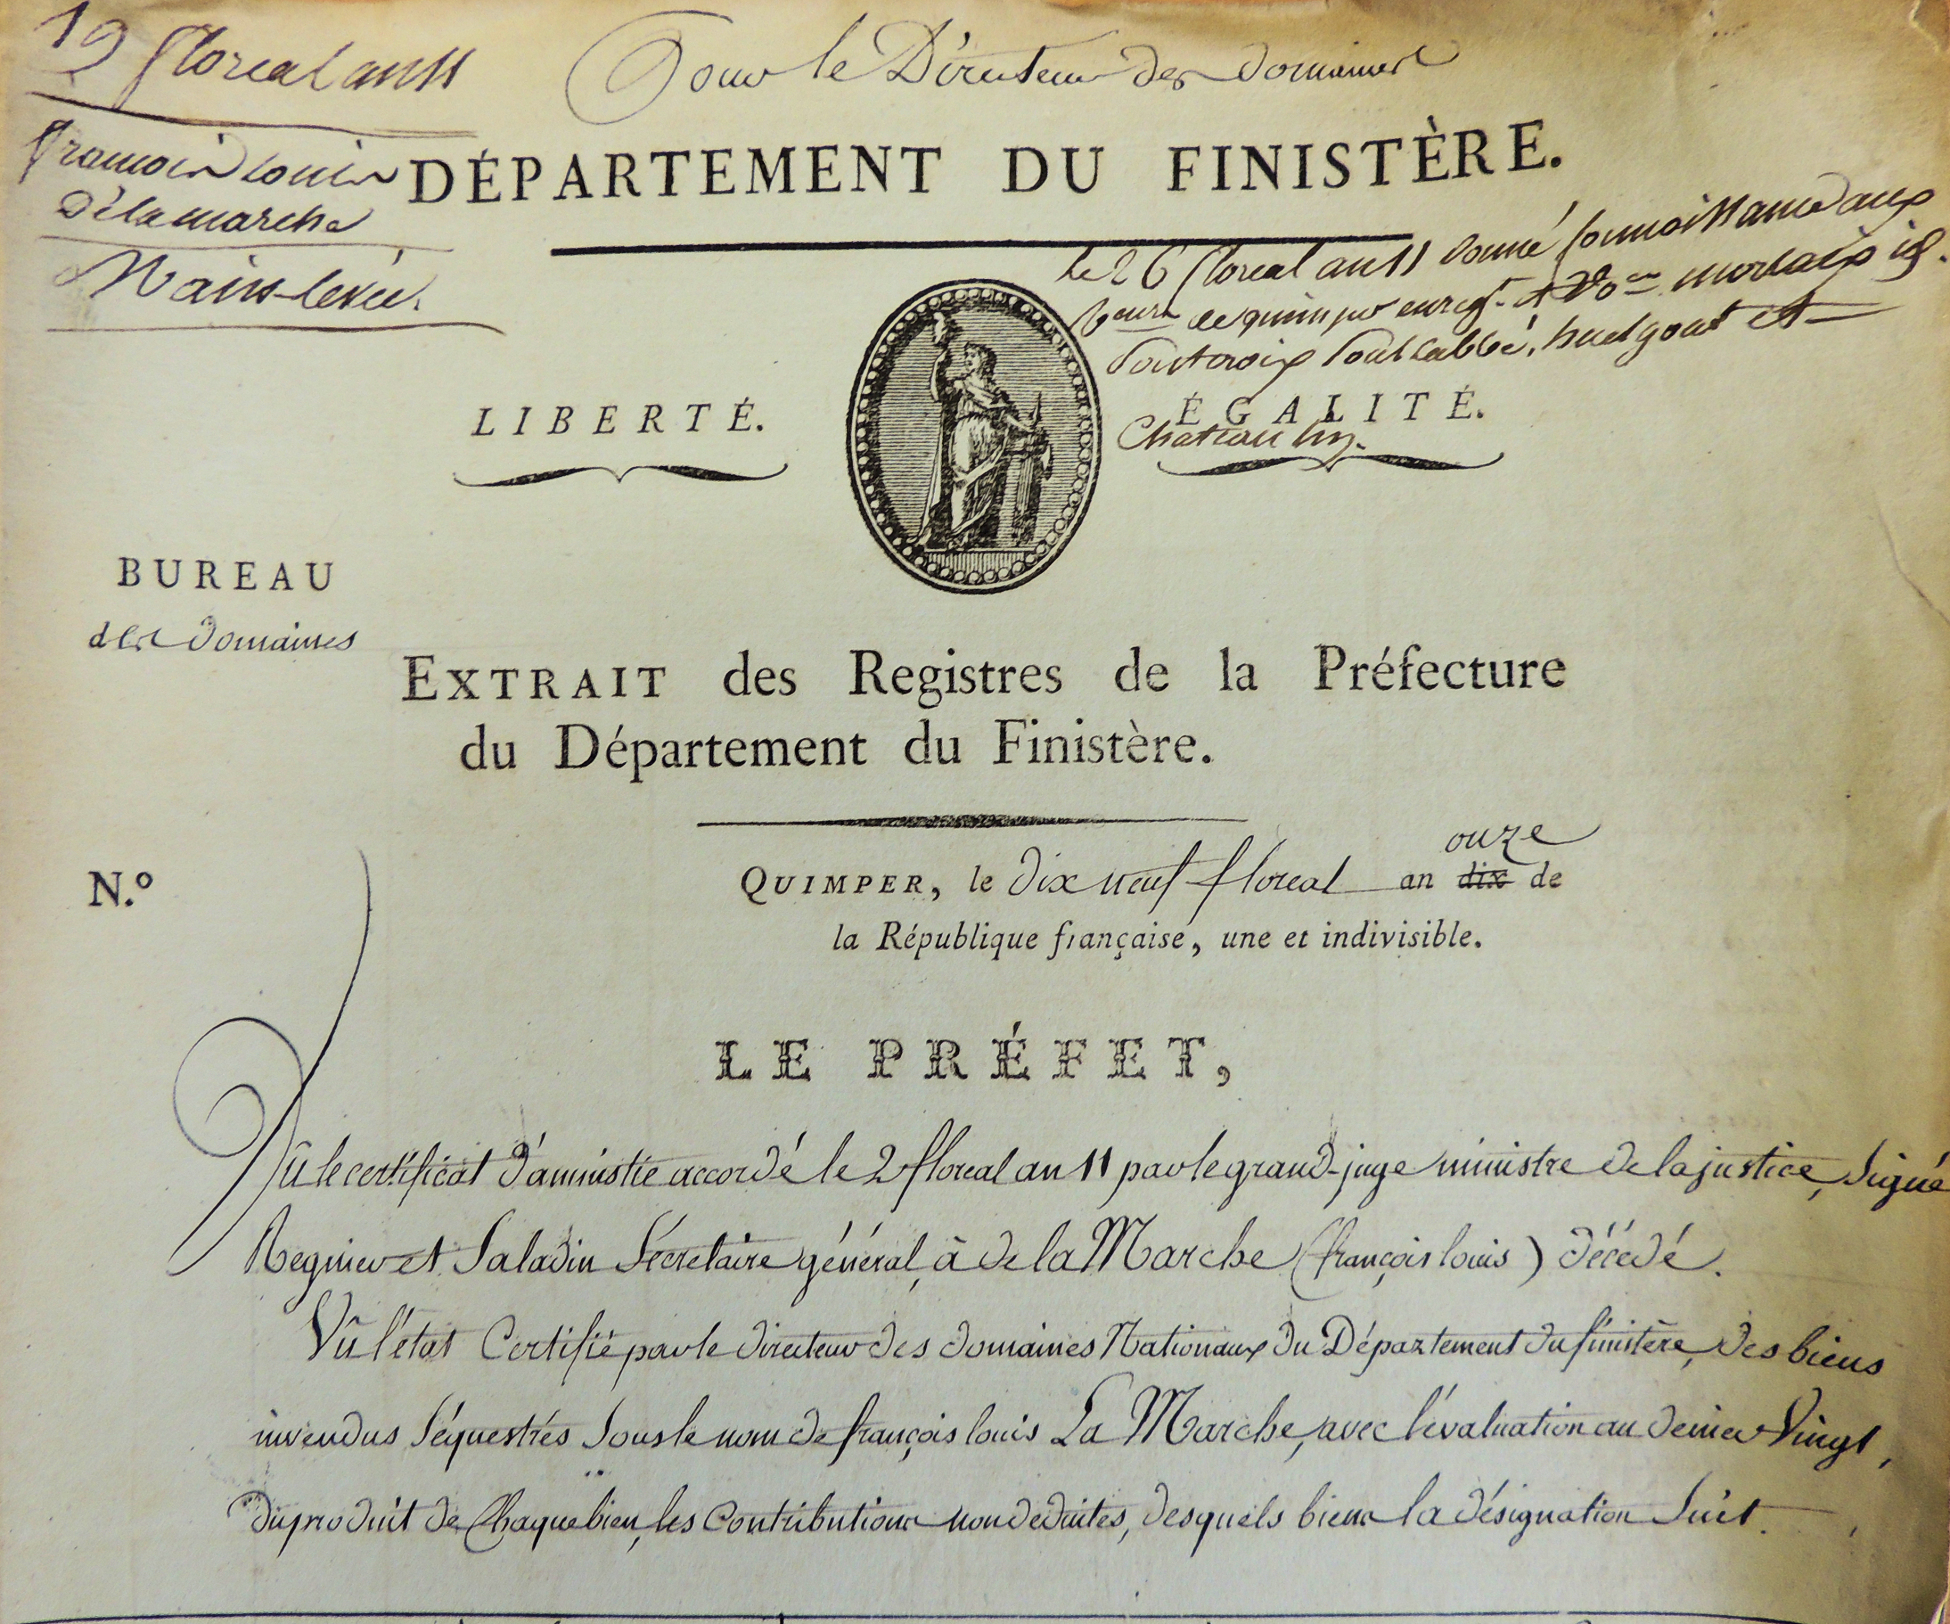 19 floreal an 11
Pour le Directeur des domaines
françois louis
Delamarche
Main-levée.
DÉPARTEMENT DU FINISTÈRE.
le 26 floreal an 11 donné connoissance aux
de quimper enregt. et morlaix id.
Pontcroix Pontlabbé, huelgoat et
Chateaulin.
LIBERTÉ.
ÉGALITÉ.
BUREAU
des domaines
EXTRAIT des Registres de la Préfecture
du Département du Finistère.
N.º
onze
QUIMPER, le dix neuf floreal an dix de
la République française, une et indivisible.
LE PRÉFET,
Vû le certificat d'amnistie accordé le 2 floreal an 11 par le grand-juge ministre de la justice, Signé
Regnier et Saladin Sécretaire général, à de la Marche (françois louis) décédé.
Vû l'état Certifié par le directeur des domaines Nationaux du Département du finistère, des biens
invendus Séquestrés Sous le nom de françois louis La Marche, avec l'évaluation au denier Vingt,
du produit de Chaque bien, les Contributions non deduites, desquels biens la désignation Suit.